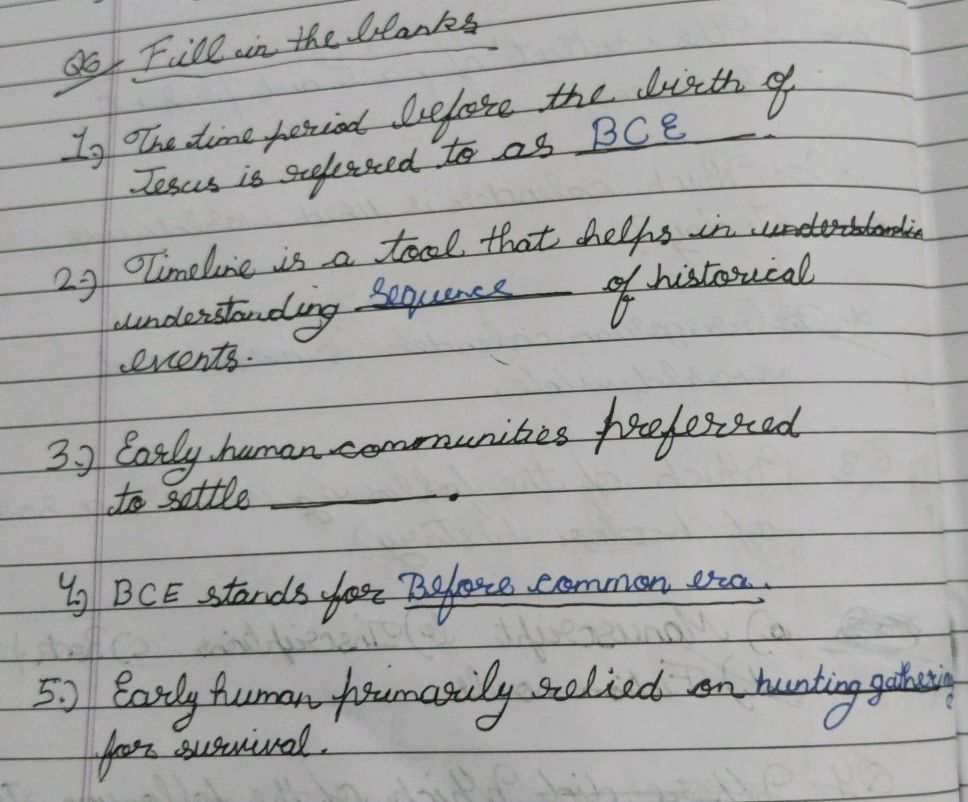 Q6 Fill in the blanks
1.) The time period before the birth of
Jesus is referred to as BCE.
2.) Timeline is a tool that helps in understandin
understanding sequence of historical
events.
3.) Early human communities preferred
to settle ______.
4.) BCE stands for Before common era.
5.) Early human primarily relied on hunting gathering
for survival.